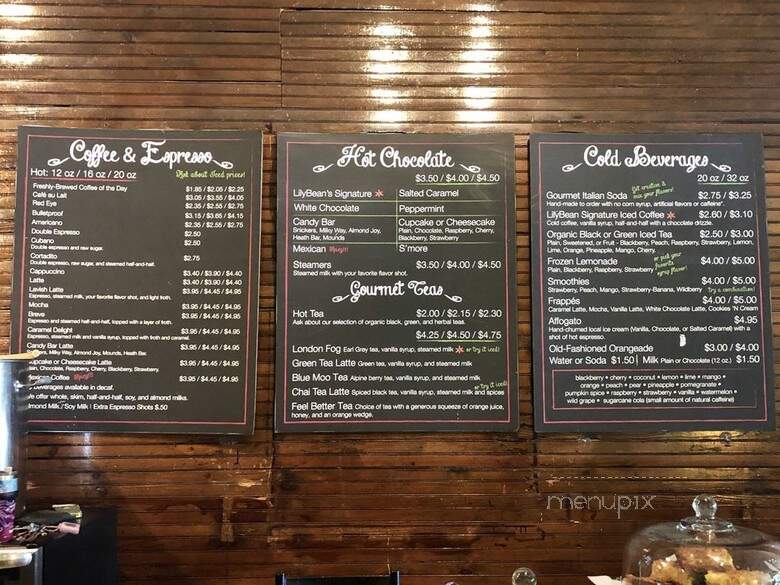 Coffee & Espresso
Hot: 12 oz / 16 oz / 20 oz
Ask about Iced prices!
Freshly-Brewed Coffee of the Day $1.85 / $2.05 / $2.25
Café au Lait $3.05 / $3.55 / $4.05
Red Eye $2.35 / $2.55 / $2.75
Bulletproof $3.15 / $3.65 / $4.15
Americano $2.35 / $2.55 / $2.75
Double Espresso $2.50
Cubano $2.50
Double espresso and raw sugar.
Cortadito $2.75
Double espresso, raw sugar, and steamed half-and-half.
Cappuccino $3.40 / $3.90 / $4.40
Latte $3.40 / $3.90 / $4.40
Lavish Latte $3.95 / $4.45 / $4.95
Espresso, steamed milk, your favorite flavor shot, and light froth.
Mocha $3.95 / $4.45 / $4.95
Breve $3.95 / $4.45 / $4.95
Espresso and steamed half-and-half, topped with a layer of froth.
Caramel Delight $3.95 / $4.45 / $4.95
Espresso, steamed milk and vanilla syrup, topped with froth and caramel.
Candy Bar Latte $3.95 / $4.45 / $4.95
Milky Way, Almond Joy, Mounds, Heath Bar.
Cupcake or Cheesecake Latte $3.95 / $4.45 / $4.95
Plain, Chocolate, Raspberry, Cherry, Blackberry, Strawberry.
Mexican Coffee $3.95 / $4.45 / $4.95
beverages available in decaf.
offer whole, skim, half-and-half, soy, and almond milks.
Almond Milk/Soy Milk | Extra Espresso Shots $.50
Hot Chocolate
$3.50 / $4.00 / $4.50
LilyBean's Signature Salted Caramel
White Chocolate Peppermint
Candy Bar Cupcake or Cheesecake
Snickers, Milky Way, Almond Joy, Heath Bar, Mounds Plain, Chocolate, Raspberry, Cherry, Blackberry, Strawberry
Mexican S'more
Steamers $3.50 / $4.00 / $4.50
Steamed milk with your favorite flavor shot.
Gourmet Teas
Hot Tea $2.00 / $2.15 / $2.30
Ask about our selection of organic black, green, and herbal teas.
$4.25 / $4.50 / $4.75
London Fog Earl Grey tea, vanilla syrup, steamed milk or try it iced!
Green Tea Latte Green tea, vanilla syrup, and steamed milk
Blue Moo Tea Alpine berry tea, vanilla syrup, and steamed milk
or try it iced!
Chai Tea Latte Spiced black tea, vanilla syrup, steamed milk and spices
Feel Better Tea Choice of tea with a generous squeeze of orange juice, honey, and an orange wedge.
Cold Beverages
20 oz / 32 oz
Get creative & mix your flavors!
Gourmet Italian Soda $2.75 / $3.25
Hand-made to order with no corn syrup, artificial flavors or caffeine*.
LilyBean Signature Iced Coffee $2.60 / $3.10
Cold coffee, vanilla syrup, half-and-half with a chocolate drizzle.
Organic Black or Green Iced Tea $2.50 / $3.00
Plain, Sweetened, or Fruit - Blackberry, Peach, Raspberry, Strawberry, Lemon, Lime, Orange, Pineapple, Mango, Cherry.
Frozen Lemonade or pick your favorite syrup flavor! $4.00 / $5.00
Plain, Blackberry, Raspberry, Strawberry
Smoothies $4.00 / $5.00
Strawberry, Peach, Mango, Strawberry-Banana, Wildberry Try a combination!
Frappés $4.00 / $5.00
Caramel Latte, Mocha, Vanilla Latte, White Chocolate Latte, Cookies 'N Cream
Affogato $4.95
Hand-churned local ice cream (Vanilla, Chocolate, or Salted Caramel) with a shot of hot espresso.
Old-Fashioned Orangeade $3.00 / $4.00
Water or Soda $1.50 | Milk Plain or Chocolate (12 oz.) $1.50
blackberry • cherry • coconut • lemon • lime • mango •
orange • peach • pear • pineapple • pomegranate •
pumpkin spice • raspberry • strawberry • vanilla • watermelon •
wild grape • sugarcane cola (small amount of natural caffeine)
menupix